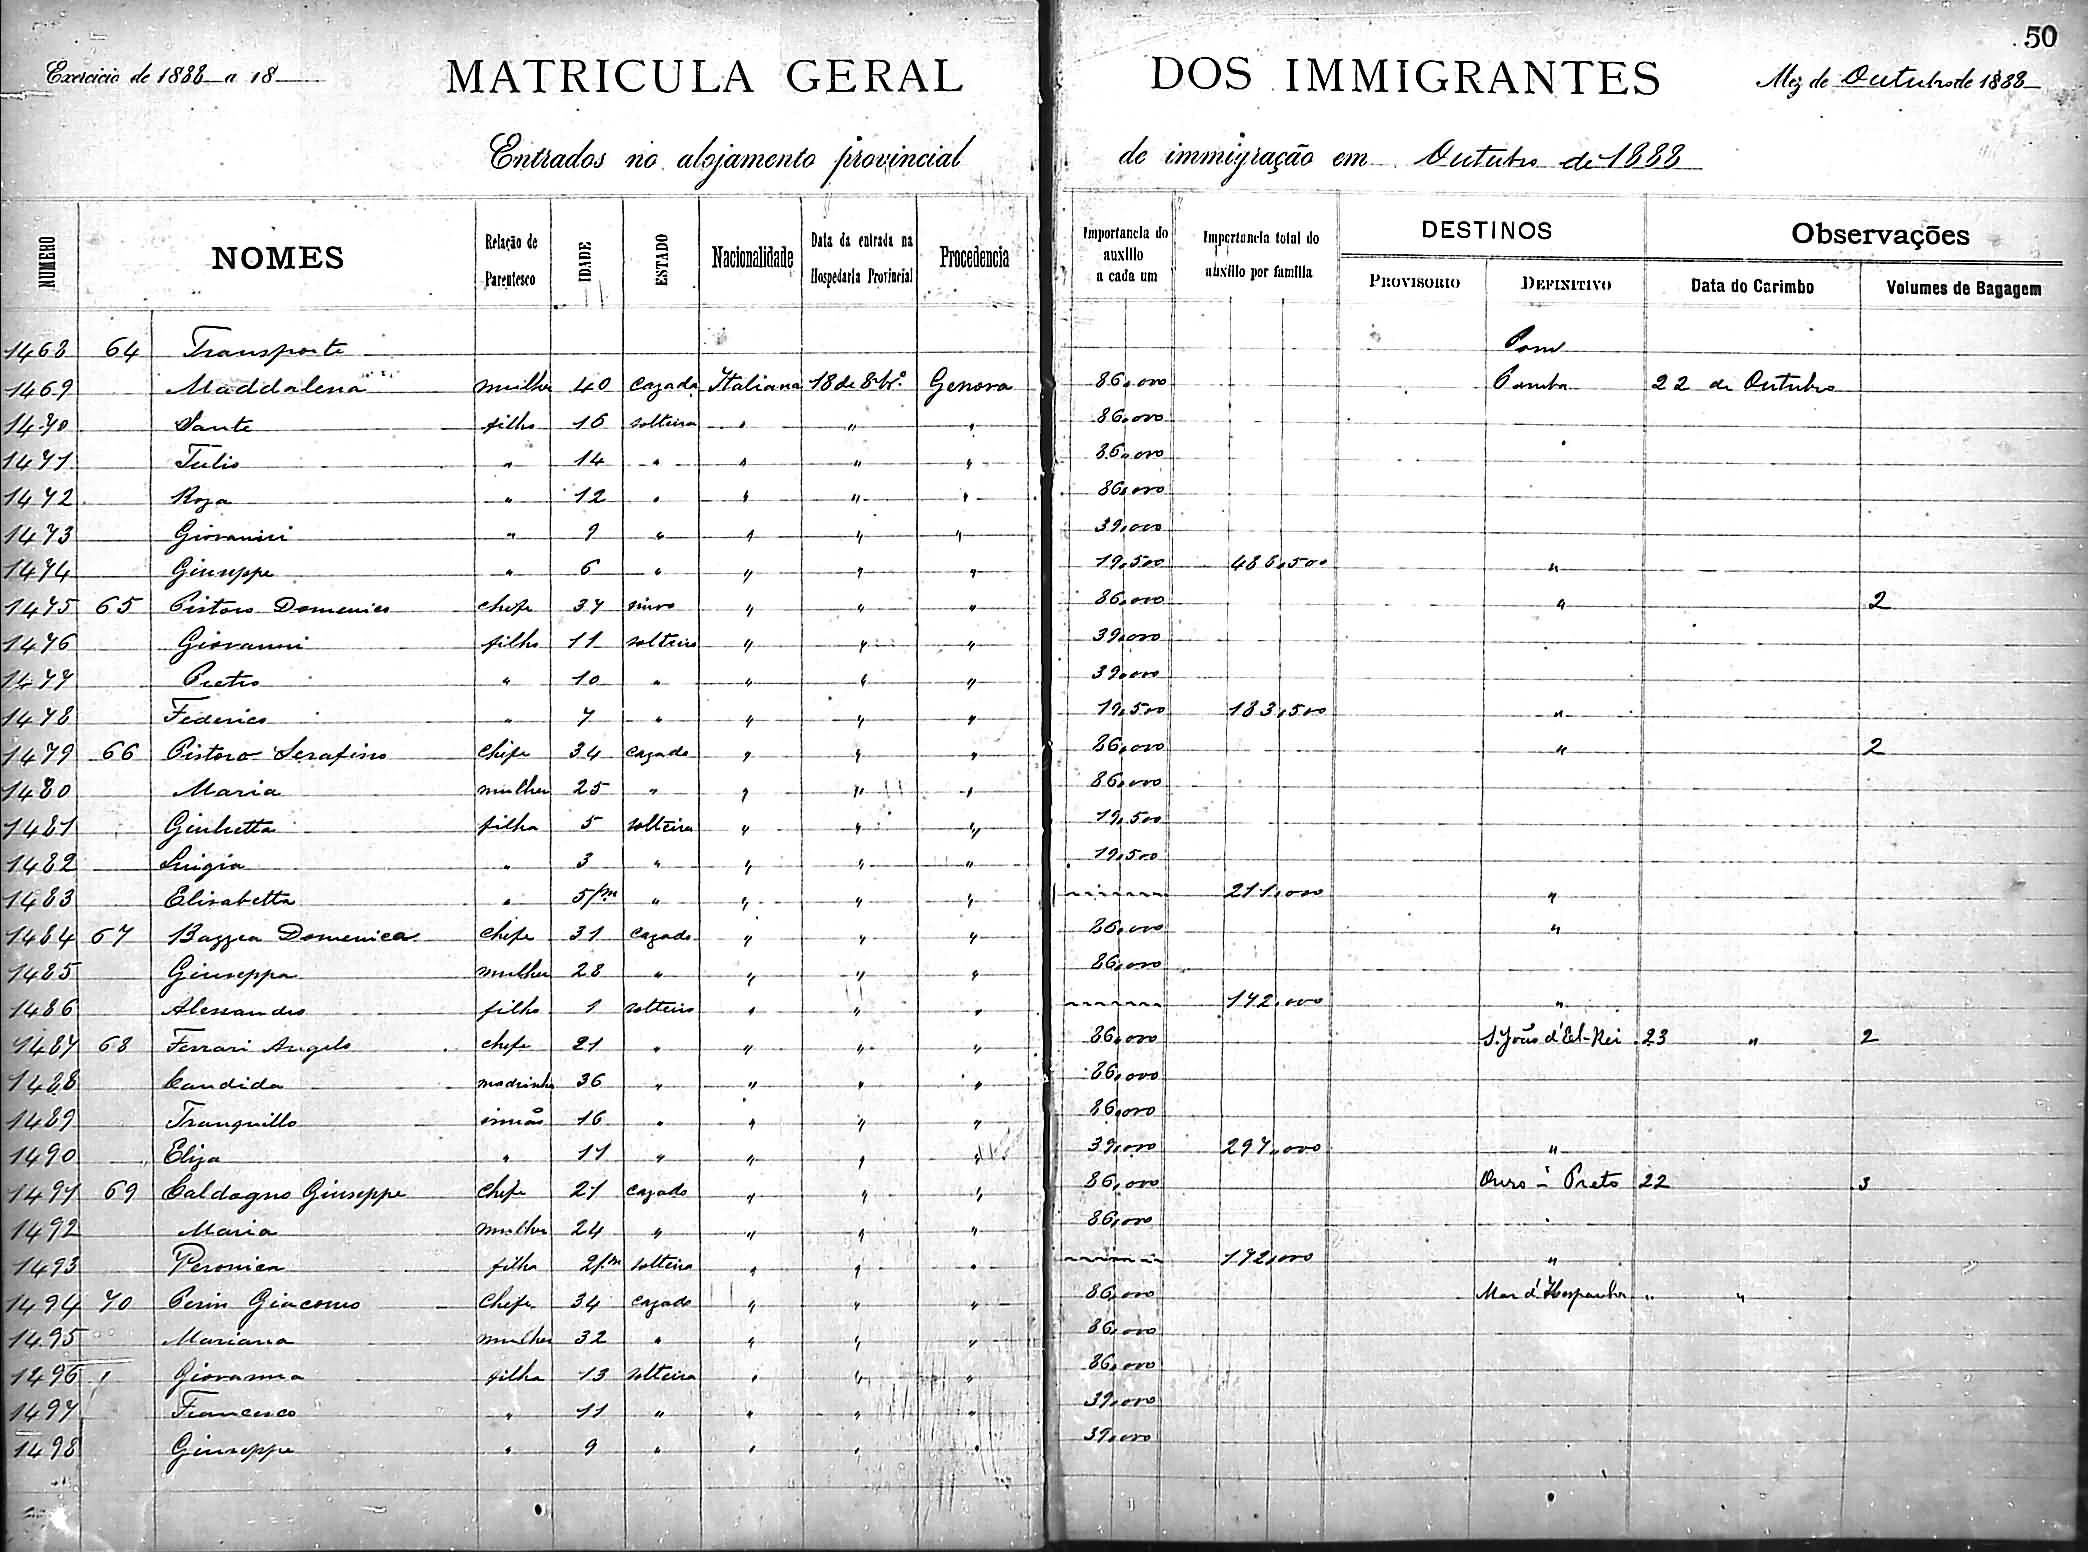 50
Exercicio de 1888 a 18
MATRICULA GERAL DOS IMMIGRANTES
Mez de Outubro de 1888
Entrados no alojamento provincial de immigração em Outubro de 1888
NUMERO NOMES Relação de Parentesco IDADE ESTADO Nacionalidade Data da entrada na Hospedaria Provincial Procedencia Importancia do auxilio a cada um Importancia total do auxilio por familia DESTINOS PROVISORIO DEFINITIVO Observações Data do Carimbo Volumes de Bagagem
1468 64 Transporte Pom
1469 Maddalena mulher 40 cazada Italiana 18 de 8br.º Genova 86,000 Pomba 22 de Outubro
1470 Sante filho 16 solteiro " " " 86,000
1471 Tulio " 14 " " " " 86,000
1472 Roza " 12 " " " " 86,000
1473 Giovanni " 9 " " " " 39,000
1474 Giuseppe " 6 " " " " 19,500 486,500 "
1475 65 Pistoro Domenico chefe 37 viuvo " " " 86,000 " 2
1476 Giovanni filho 11 solteiro " " " 39,000
1477 Pietro " 10 " " " " 39,000
1478 Federico " 7 " " " " 19,500 183,500 "
1479 66 Pistoro Serafino chefe 34 cazado " " " 86,000 " 2
1480 Maria mulher 25 " " " " 86,000
1481 Giulietta filha 5 solteira " " " 19,500
1482 Luigia " 3 " " " " 19,500
1483 Elisabetta " 5/m " " " " 211,000 "
1484 67 Bazzea Domenico chefe 31 cazado " " " 86,000 "
1485 Giuseppa mulher 28 " " " " 86,000
1486 Alessandro filho 1 solteiro " " " 172,000 "
1487 68 Ferrari Angelo chefe 21 " " " " 86,000 S. João d'El-Rei 23 " 2
1488 Candida madrinha 36 " " " " 86,000
1489 Tranquillo irmão 16 " " " " 86,000
1490 Eliza " 11 " " " " 39,000 297,000 "
1491 69 Caldogno Giuseppe chefe 21 cazado " " " 86,000 Ouro - Preto 22 3
1492 Maria mulher 24 " " " " 86,000
1493 Veronica filha 2/m solteira " " " 172,000 "
1494 70 Perin Giacomo chefe 34 cazado " " " 86,000 Mar d'Hespanha " "
1495 Mariana mulher 32 " " " " 86,000
1496 Giovanna filha 13 solteira " " " 86,000
1497 Francesco " 11 " " " " 39,000
1498 Giuseppe " 9 " " " " 39,000